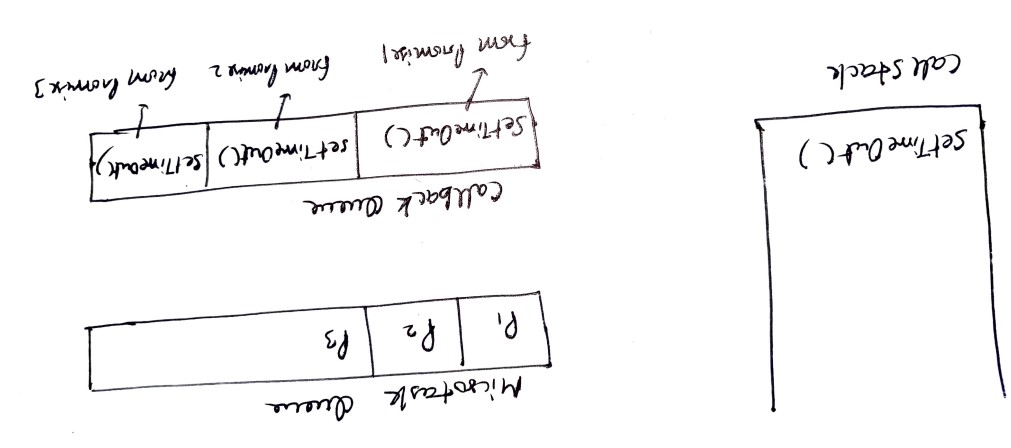 Microtask Queue
P1 P2 P3
Callback Queue
SetTimeOut() setTimeOut() SetTimeOut()
from Promise1 from Promise 2 from Promise 3
SetTimeOut()
Call Stack